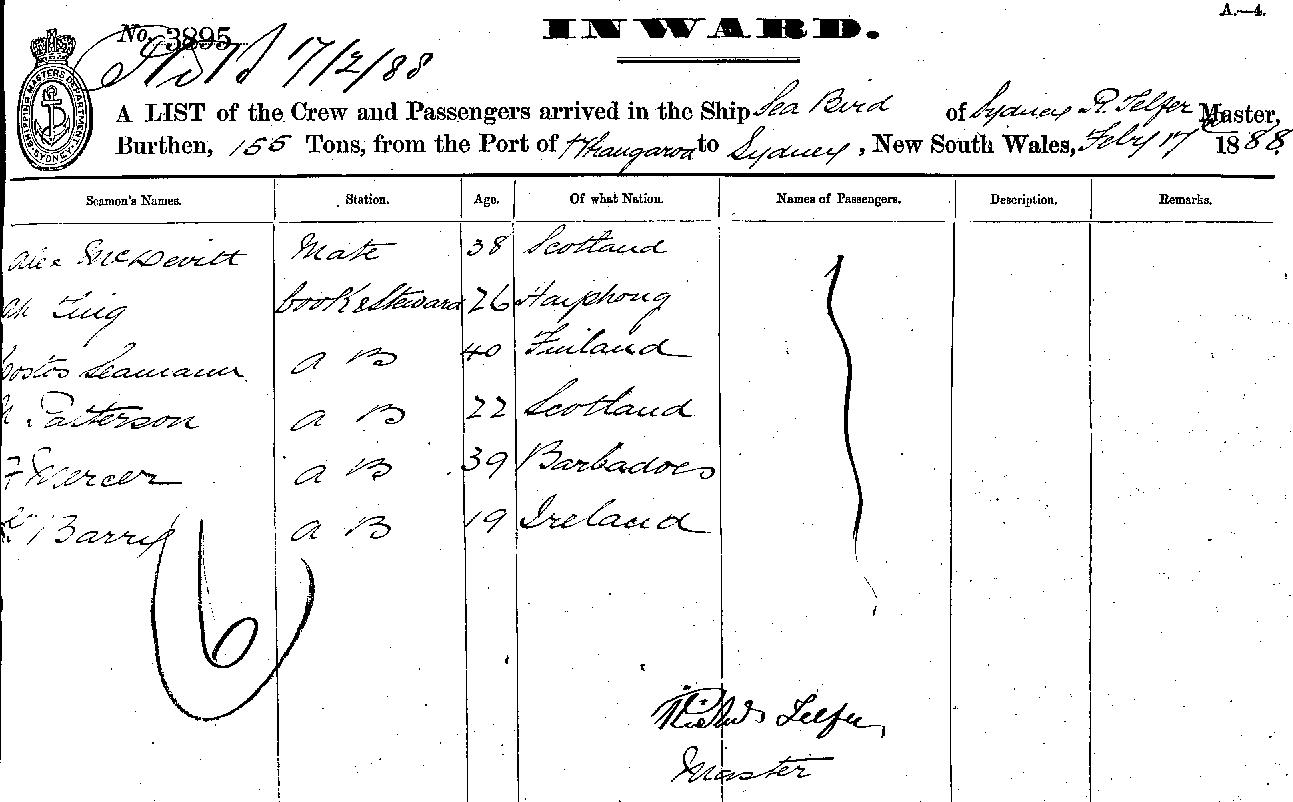 A.—4.
INWARD.
No. 3895
17/2/88
SHIPPING MASTERS DEPARTMENT SYDNEY
A LIST of the Crew and Passengers arrived in the Ship Sea Bird of Sydney R. Telfer Master,
Burthen, 155 Tons, from the Port of Whangaroa to Sydney, New South Wales, Feby 17th 1888.
Seamen's Names. Station. Age. Of what Nation. Names of Passengers. Description. Remarks.
Alex McDevitt Mate 38 Scotland
Ah Ling Cook & Steward 26 Haiphong
Seamann A B 40 Finland
Patterson A B 22 Scotland
F Mercer A B 39 Barbadoes
Barry A B 19 Ireland
6
Telfer,
Master